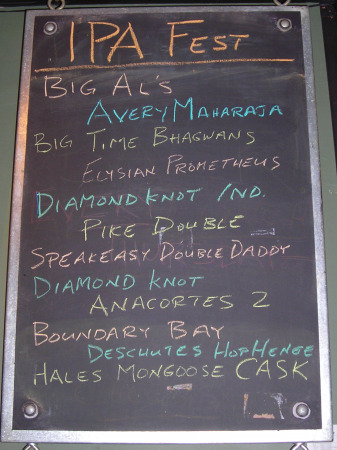 IPA FEST
BIG AL'S
AVERY MAHARAJA
BIG TIME BHAGWANS
ELYSIAN PROMETHEUS
DIAMOND KNOT IND.
PIKE DOUBLE
SPEAKEASY DOUBLE DADDY
DIAMOND KNOT
ANACORTES 2
BOUNDARY BAY
DESCHUTES HOPHENGE
HALES MONGOOSE CASK